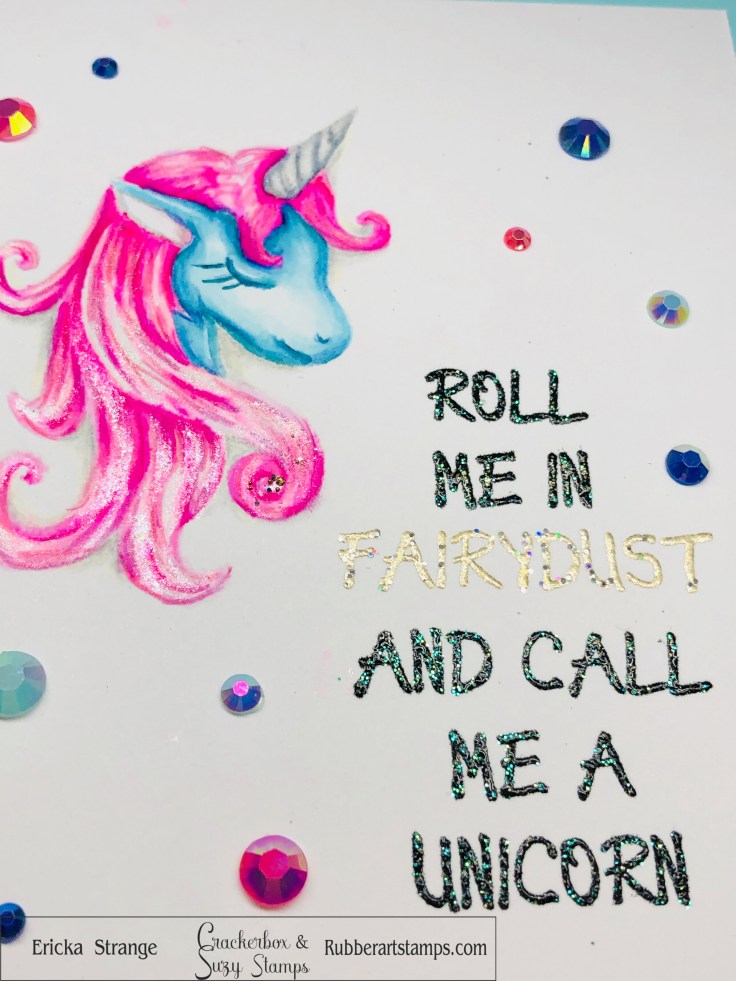 ROLL
ME IN
FAIRYDUST
AND CALL
ME A
UNICORN
Ericka Strange Crackerbox & Suzy Stamps Rubberartstamps.com